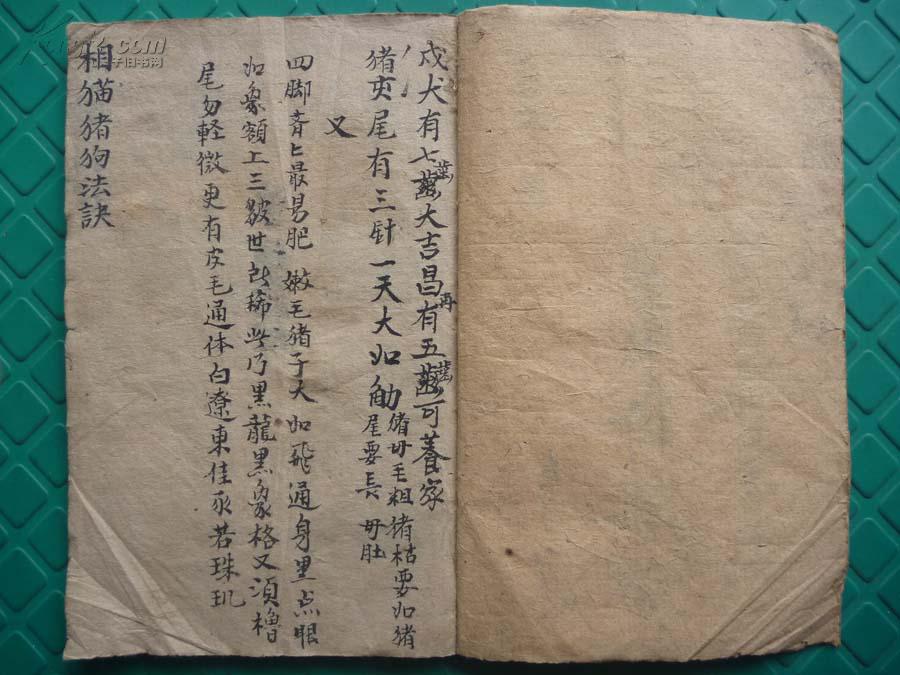 戍犬有七齒大吉昌 再有五齒可養家
猪夾尾有三針一天大如觔 猪毋毛粗 猪枯要如猪
尾要長 毋肚
又
四脚齐匕最易肥 嫩毛猪子大如飛 通身里点眼
如象額上三皺世所稀 此乃黑龍黑象格 又須櫓
尾勿軽微 更有皮毛通体白 遼東佳豕若珠玑
相猫猪狗法訣